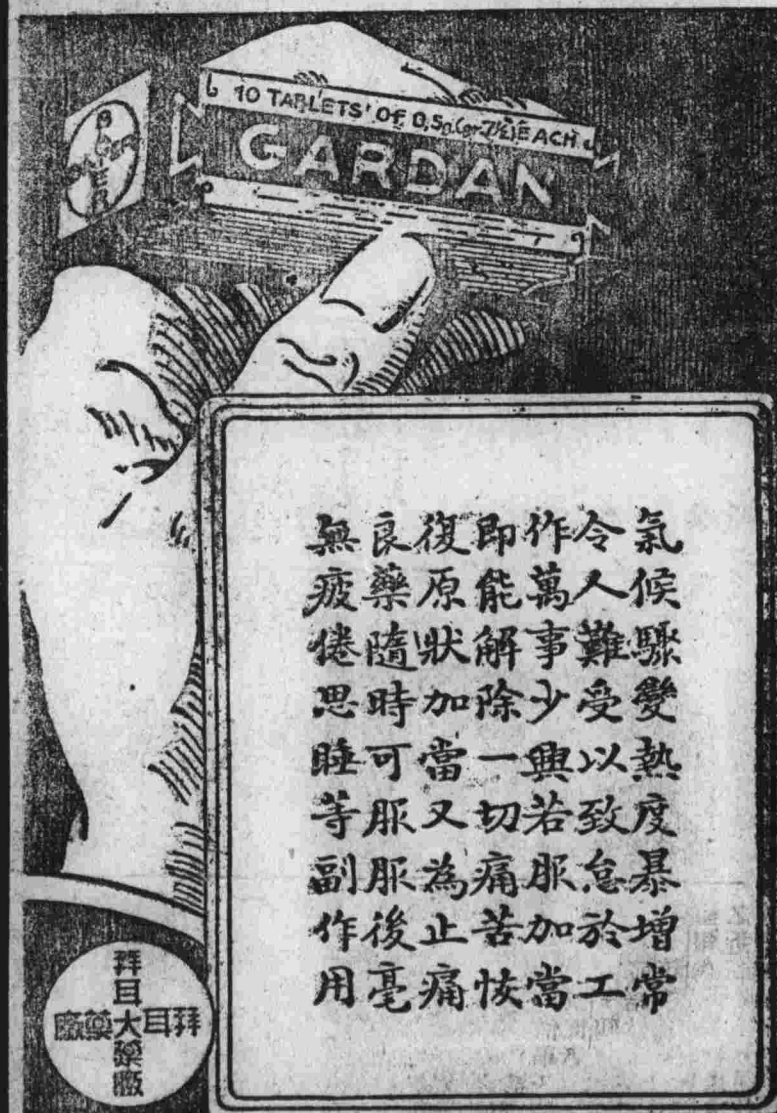 10 TABLETS OF 0,5g.(gr.7½)EACH.
GARDAN
BAYER
BAYER
氣候驟變熱度暴增常
令人難受以致怠於工
作萬事少興若服加當
即能解除一切痛苦恢
復原狀加當又為止痛
良藥隨時可服服後毫
無疲倦思睡等副作用
拜耳大藥廠
拜耳大藥廠